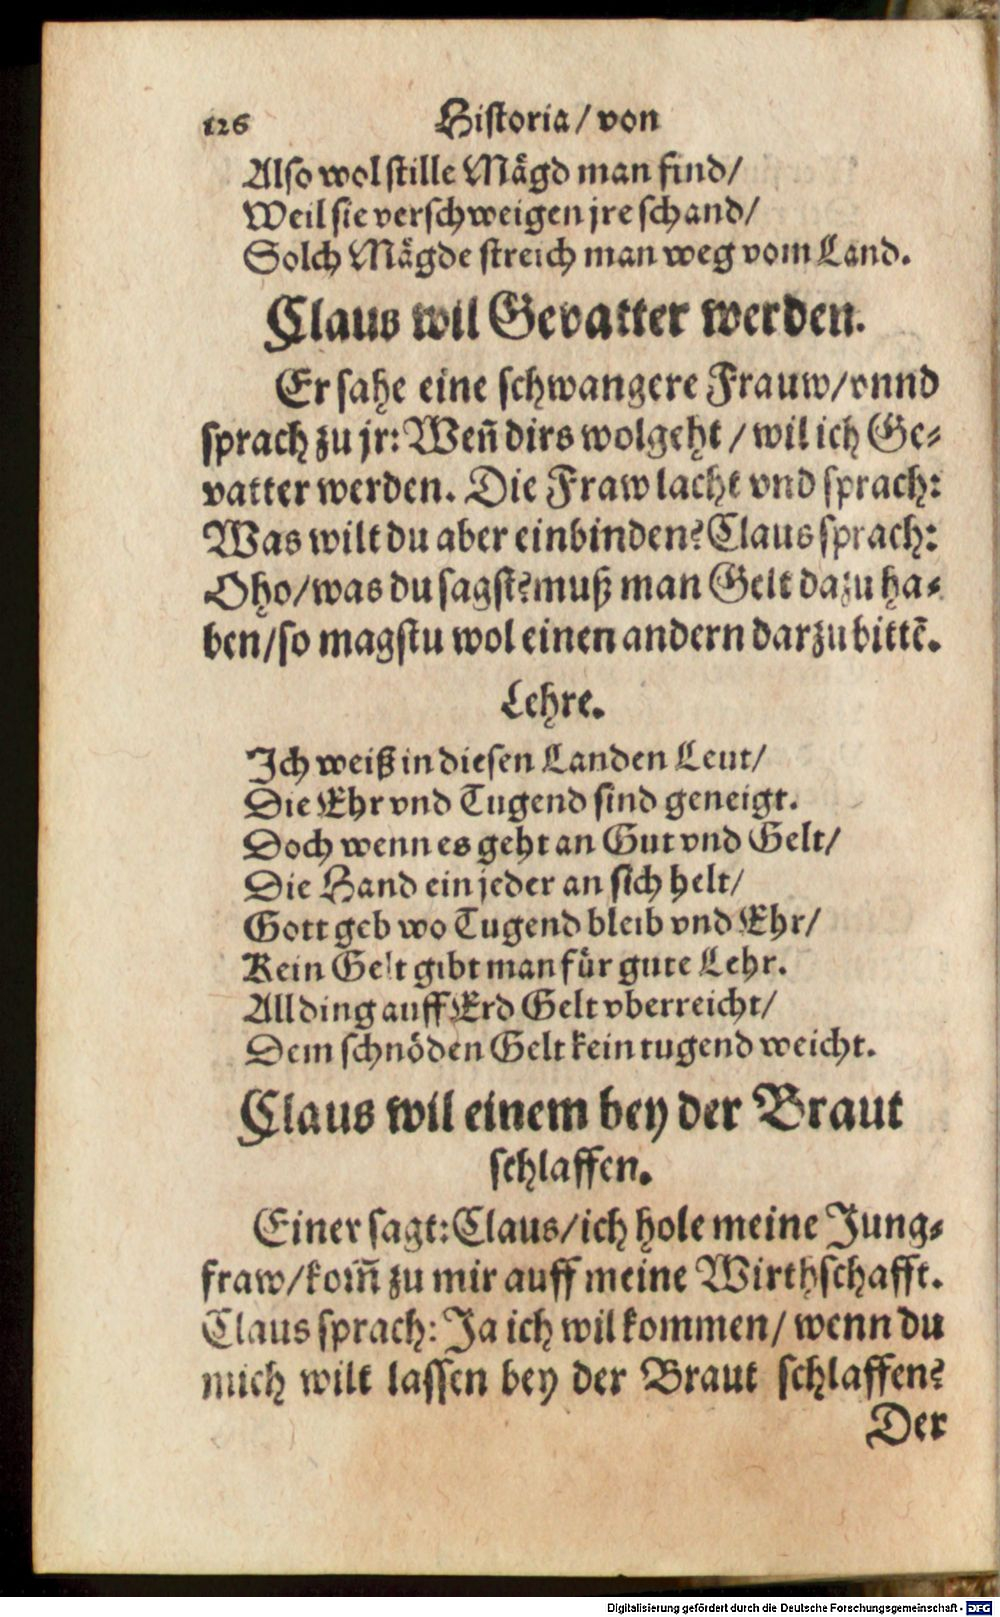 126 Historia/ von
Also wol stille Mägd man find/
Weil sie verschweigen jre schand/
Solch Mägde streich man weg vom Land.
Claus wil Gevatter werden.
Er sahe eine schwangere Frauw/vnnd
sprach zu jr: Weñ dirs wolgeht / wil ich Ge-
vatter werden. Die Fraw lacht vnd sprach:
Was wilt du aber einbinden? Claus sprach:
Oho/was du sagst? muß man Gelt dazu ha-
ben/so magstu wol einen andern darzu bittē.
Lehre.
Ich weiß in diesen Landen Leut/
Die Ehr vnd Tugend sind geneigt.
Doch wenn es geht an Gut vnd Gelt/
Die Hand ein jeder an sich helt/
Gott geb wo Tugend bleib vnd Ehr/
Kein Gelt gibt man für gute Lehr.
All ding auff Erd Gelt vberreicht/
Dem schnöden Gelt kein tugend weicht.
Claus wil einem bey der Braut
schlaffen.
Einer sagt: Claus/ich hole meine Jung-
fraw/kom̃ zu mir auff meine Wirthschafft.
Claus sprach: Ja ich wil kommen/ wenn du
mich wilt lassen bey der Braut schlaffen?
Der
Digitalisierung gefördert durch die Deutsche Forschungsgemeinschaft - DFG